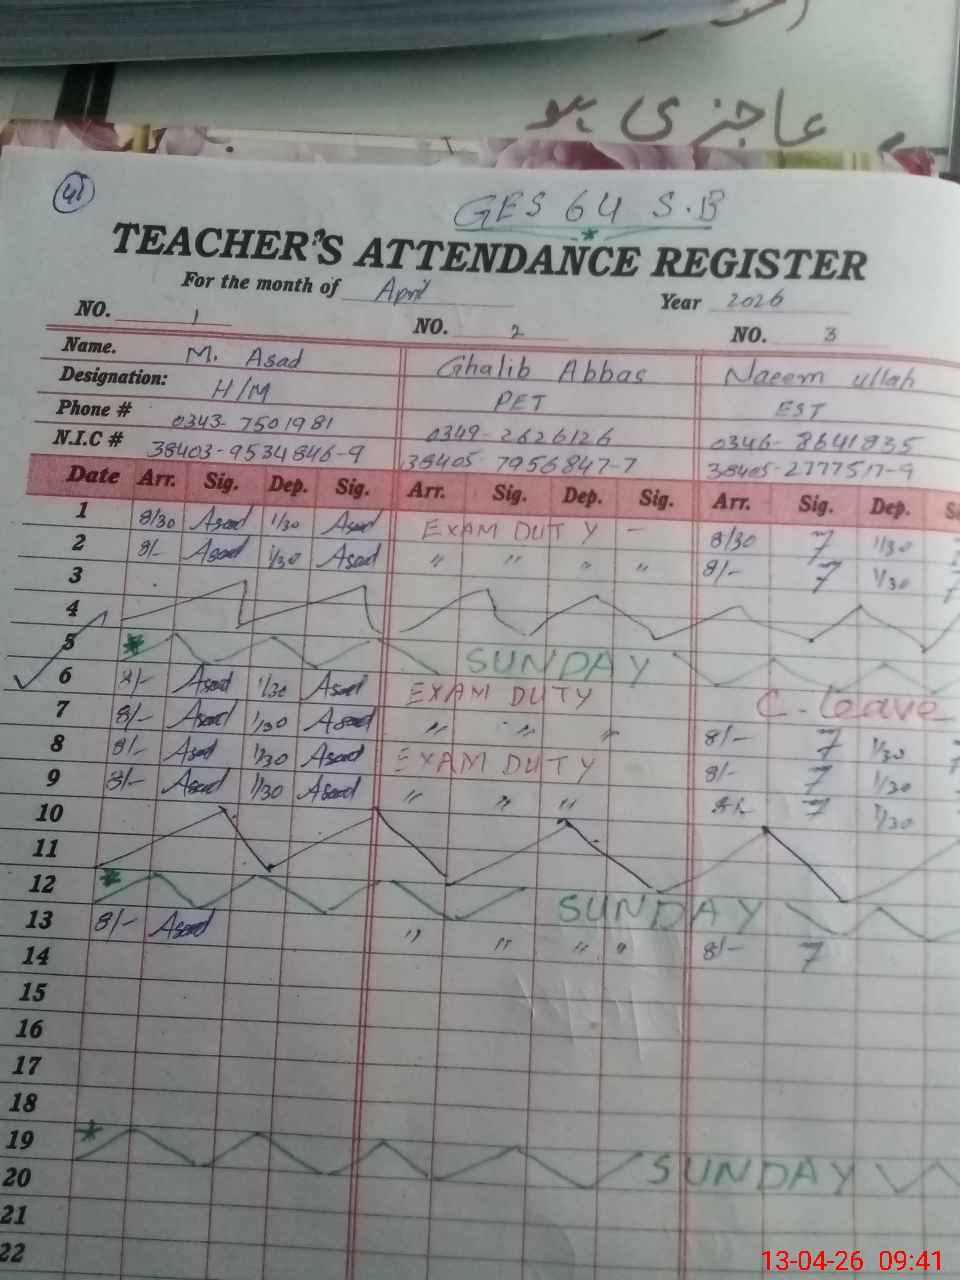 عاجزی ہو
41
GES 64 S.B
TEACHER'S ATTENDANCE REGISTER
For the month of April Year 2026
NO. 1 NO. 2 NO. 3
Name. M. Asad Ghalib Abbas Naeem ullah
Designation: H/M PET EST
Phone # 0343-7501981 0349-2626126 0346-8641835
N.I.C # 38403-9534846-9 38405-7956847-7 38405-2777517-9
Date Arr. Sig. Dep. Sig. Arr. Sig. Dep. Sig. Arr. Sig. Dep.
1 8/30 Asad 1/30 Asad EXAM DUTY - 8/30 7 1/30
2 8/- Asad 1/30 Asad " " " " 8/- 7 1/30
3
4
5 * SUNDAY
6 8/- Asad 1/30 Asad EXAM DUTY C. leave
7 8/- Asad 1/30 Asad " " " 8/- 7 1/30
8 8/- Asad 1/30 Asad EXAM DUTY 8/- 7 1/30
9 8/- Asad 1/30 Asad " " " 8/- 7 1/30
10
11
12 * SUNDAY
13 8/- Asad " " " " 8/- 7
14
15
16
17
18
19 * SUNDAY
20
21
22
13-04-26 09:41